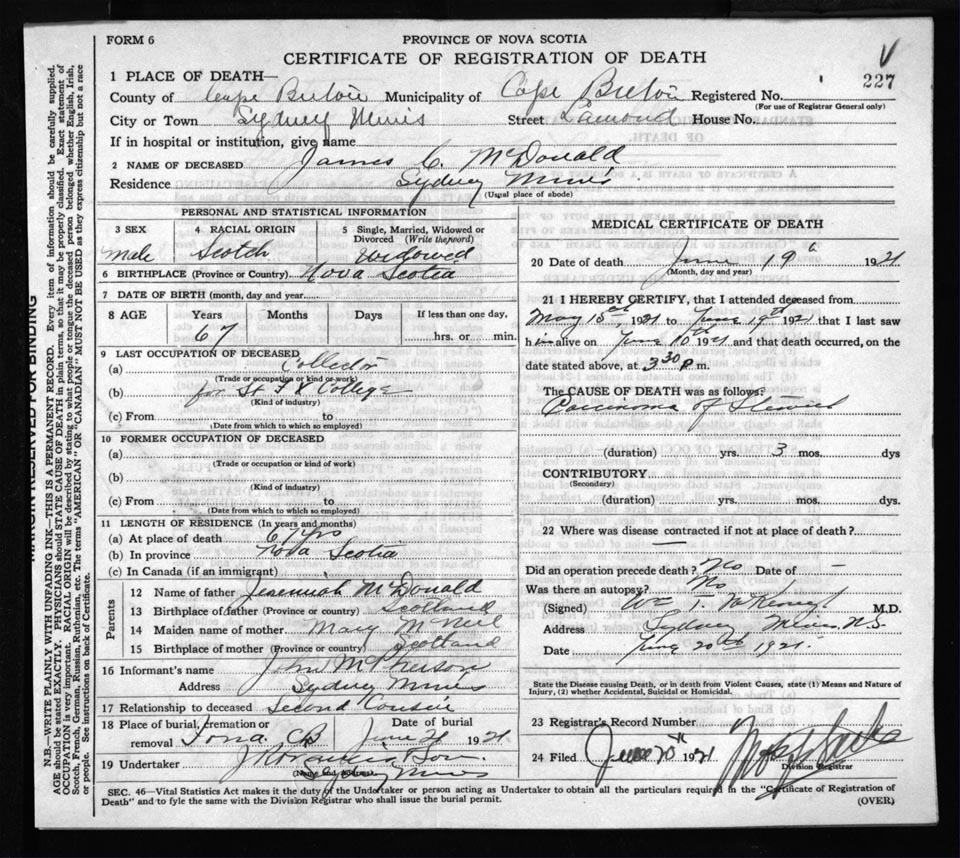 FORM 6
PROVINCE OF NOVA SCOTIA
CERTIFICATE OF REGISTRATION OF DEATH
227
1 PLACE OF DEATH—
County of Cape Breton Municipality of Cape Breton Registered No.
(For use of Registrar General only)
City or Town Sydney Mines Street Lamond House No.
If in hospital or institution, give name
2 NAME OF DECEASED James C. McDonald
Residence Sydney Mines
(Usual place of abode)
PERSONAL AND STATISTICAL INFORMATION
3 SEX male
4 RACIAL ORIGIN Scotch
5 Single, Married, Widowed or Divorced (Write the word) Widowed
6 BIRTHPLACE (Province or Country) Nova Scotia
7 DATE OF BIRTH (month, day and year)
8 AGE Years 67 Months Days If less than one day, hrs. or min.
9 LAST OCCUPATION OF DECEASED
(a) Collector
(Trade or occupation or kind of work)
(b) for St F X College
(Kind of industry)
(c) From to
(Date from which to which so employed)
10 FORMER OCCUPATION OF DECEASED
(a)
(Trade or occupation or kind of work)
(b)
(Kind of industry)
(c) From to
(Date from which to which so employed)
11 LENGTH OF RESIDENCE (In years and months)
(a) At place of death 67 yrs
(b) In province Nova Scotia
(c) In Canada (if an immigrant)
Parents
12 Name of father Jeremiah McDonald
13 Birthplace of father (Province or country) Scotland
14 Maiden name of mother Mary McNeil
15 Birthplace of mother (Province or country) Scotland
16 Informant's name John McPherson
Address Sydney Mines
17 Relationship to deceased Second Cousin
18 Place of burial, cremation or removal Iona CB Date of burial June 21 1921
19 Undertaker
(Name and address) Sydney Mines
MEDICAL CERTIFICATE OF DEATH
20 Date of death June 19 1921
(Month, day and year)
21 I HEREBY CERTIFY, that I attended deceased from
May 15th, 1921 to June 19th 1921 that I last saw
him alive on June 10th 1921 and that death occurred, on the
date stated above, at 3 30 P m.
The CAUSE OF DEATH was as follows:
Carcinoma of
(duration) yrs. 3 mos. dys
CONTRIBUTORY
(Secondary)
(duration) yrs. mos. dys.
22 Where was disease contracted if not at place of death?
Did an operation precede death? No Date of –
Was there an autopsy? No
(Signed) M.D.
Address Sydney Mines N.S.
Date June 20th 1921.
State the Disease causing Death, or in death from Violent Causes, state (1) Means and Nature of Injury, (2) whether Accidental, Suicidal or Homicidal.
23 Registrar's Record Number
24 Filed June 20th 1921
Division Registrar
SEC. 46—Vital Statistics Act makes it the duty of the Undertaker or person acting as Undertaker to obtain all the particulars required in the "Certificate of Registration of
Death" and to fyle the same with the Division Registrar who shall issue the burial permit.
(OVER)
MARGIN RESERVED FOR BINDING
N.B.—WRITE PLAINLY WITH UNFADING INK—THIS IS A PERMANENT RECORD. Every item of information should be carefully supplied.
AGE should be stated EXACTLY. PHYSICIANS should STATE CAUSE OF DEATH in plain terms, so that it may be properly classified. Exact statement of
OCCUPATION is very important. RACIAL ORIGIN will be described by stating to what people or tongue the deceased person belonged whether English, Irish,
Scotch, French, German, Russian, Ruthenian, etc. The terms "AMERICAN" OR "CANADIAN" MUST NOT BE USED as they express citizenship but not a race
or people. See instructions on back of Certificate.